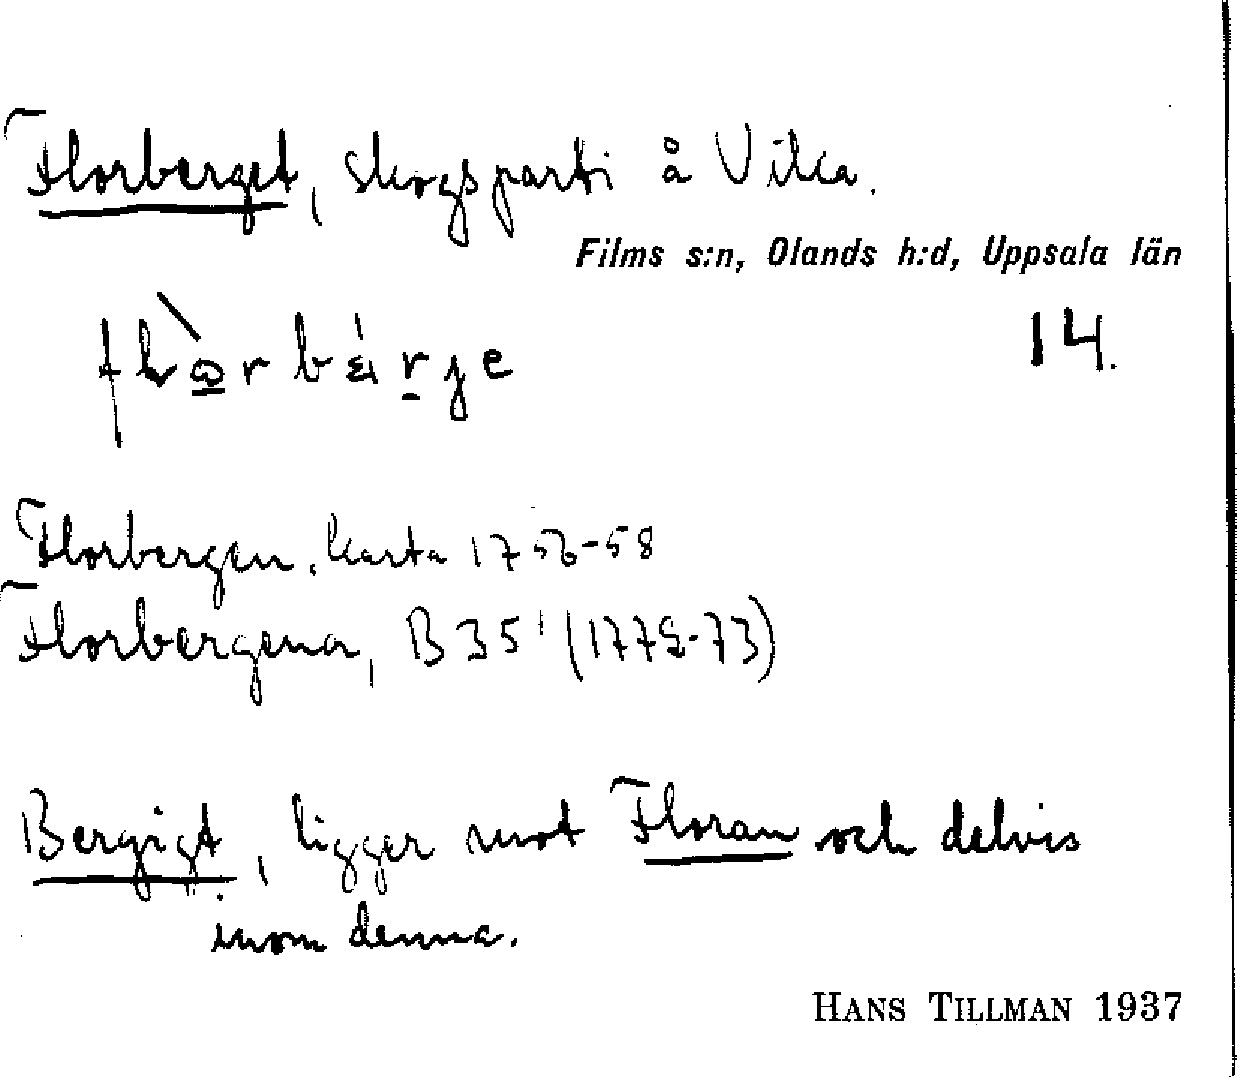 Florberget, skogsparti å Vilka.
Films s:n, Olands h:d, Uppsala län
14.
Florbergen. karta 1756-58
Florbergena, B 35¹ (1772-73)
Bergigt, ligger mot Floran och delvis
inom denna.
HANS TILLMAN 1937